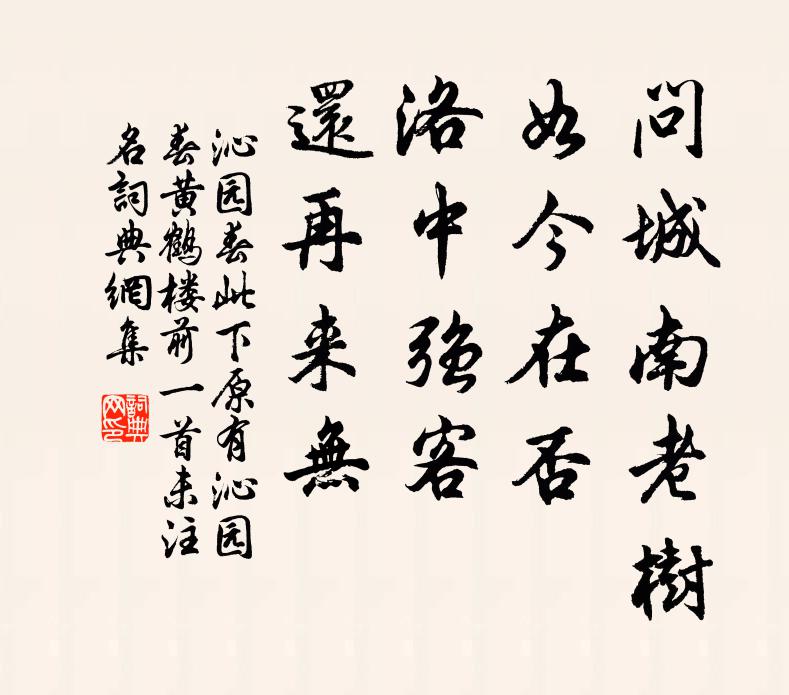 問城南老樹
如今在否
洛中強客
還再来無
沁园春此下原有沁园
春黄鶴楼前一首未注
名詞典網集
詞典
网印